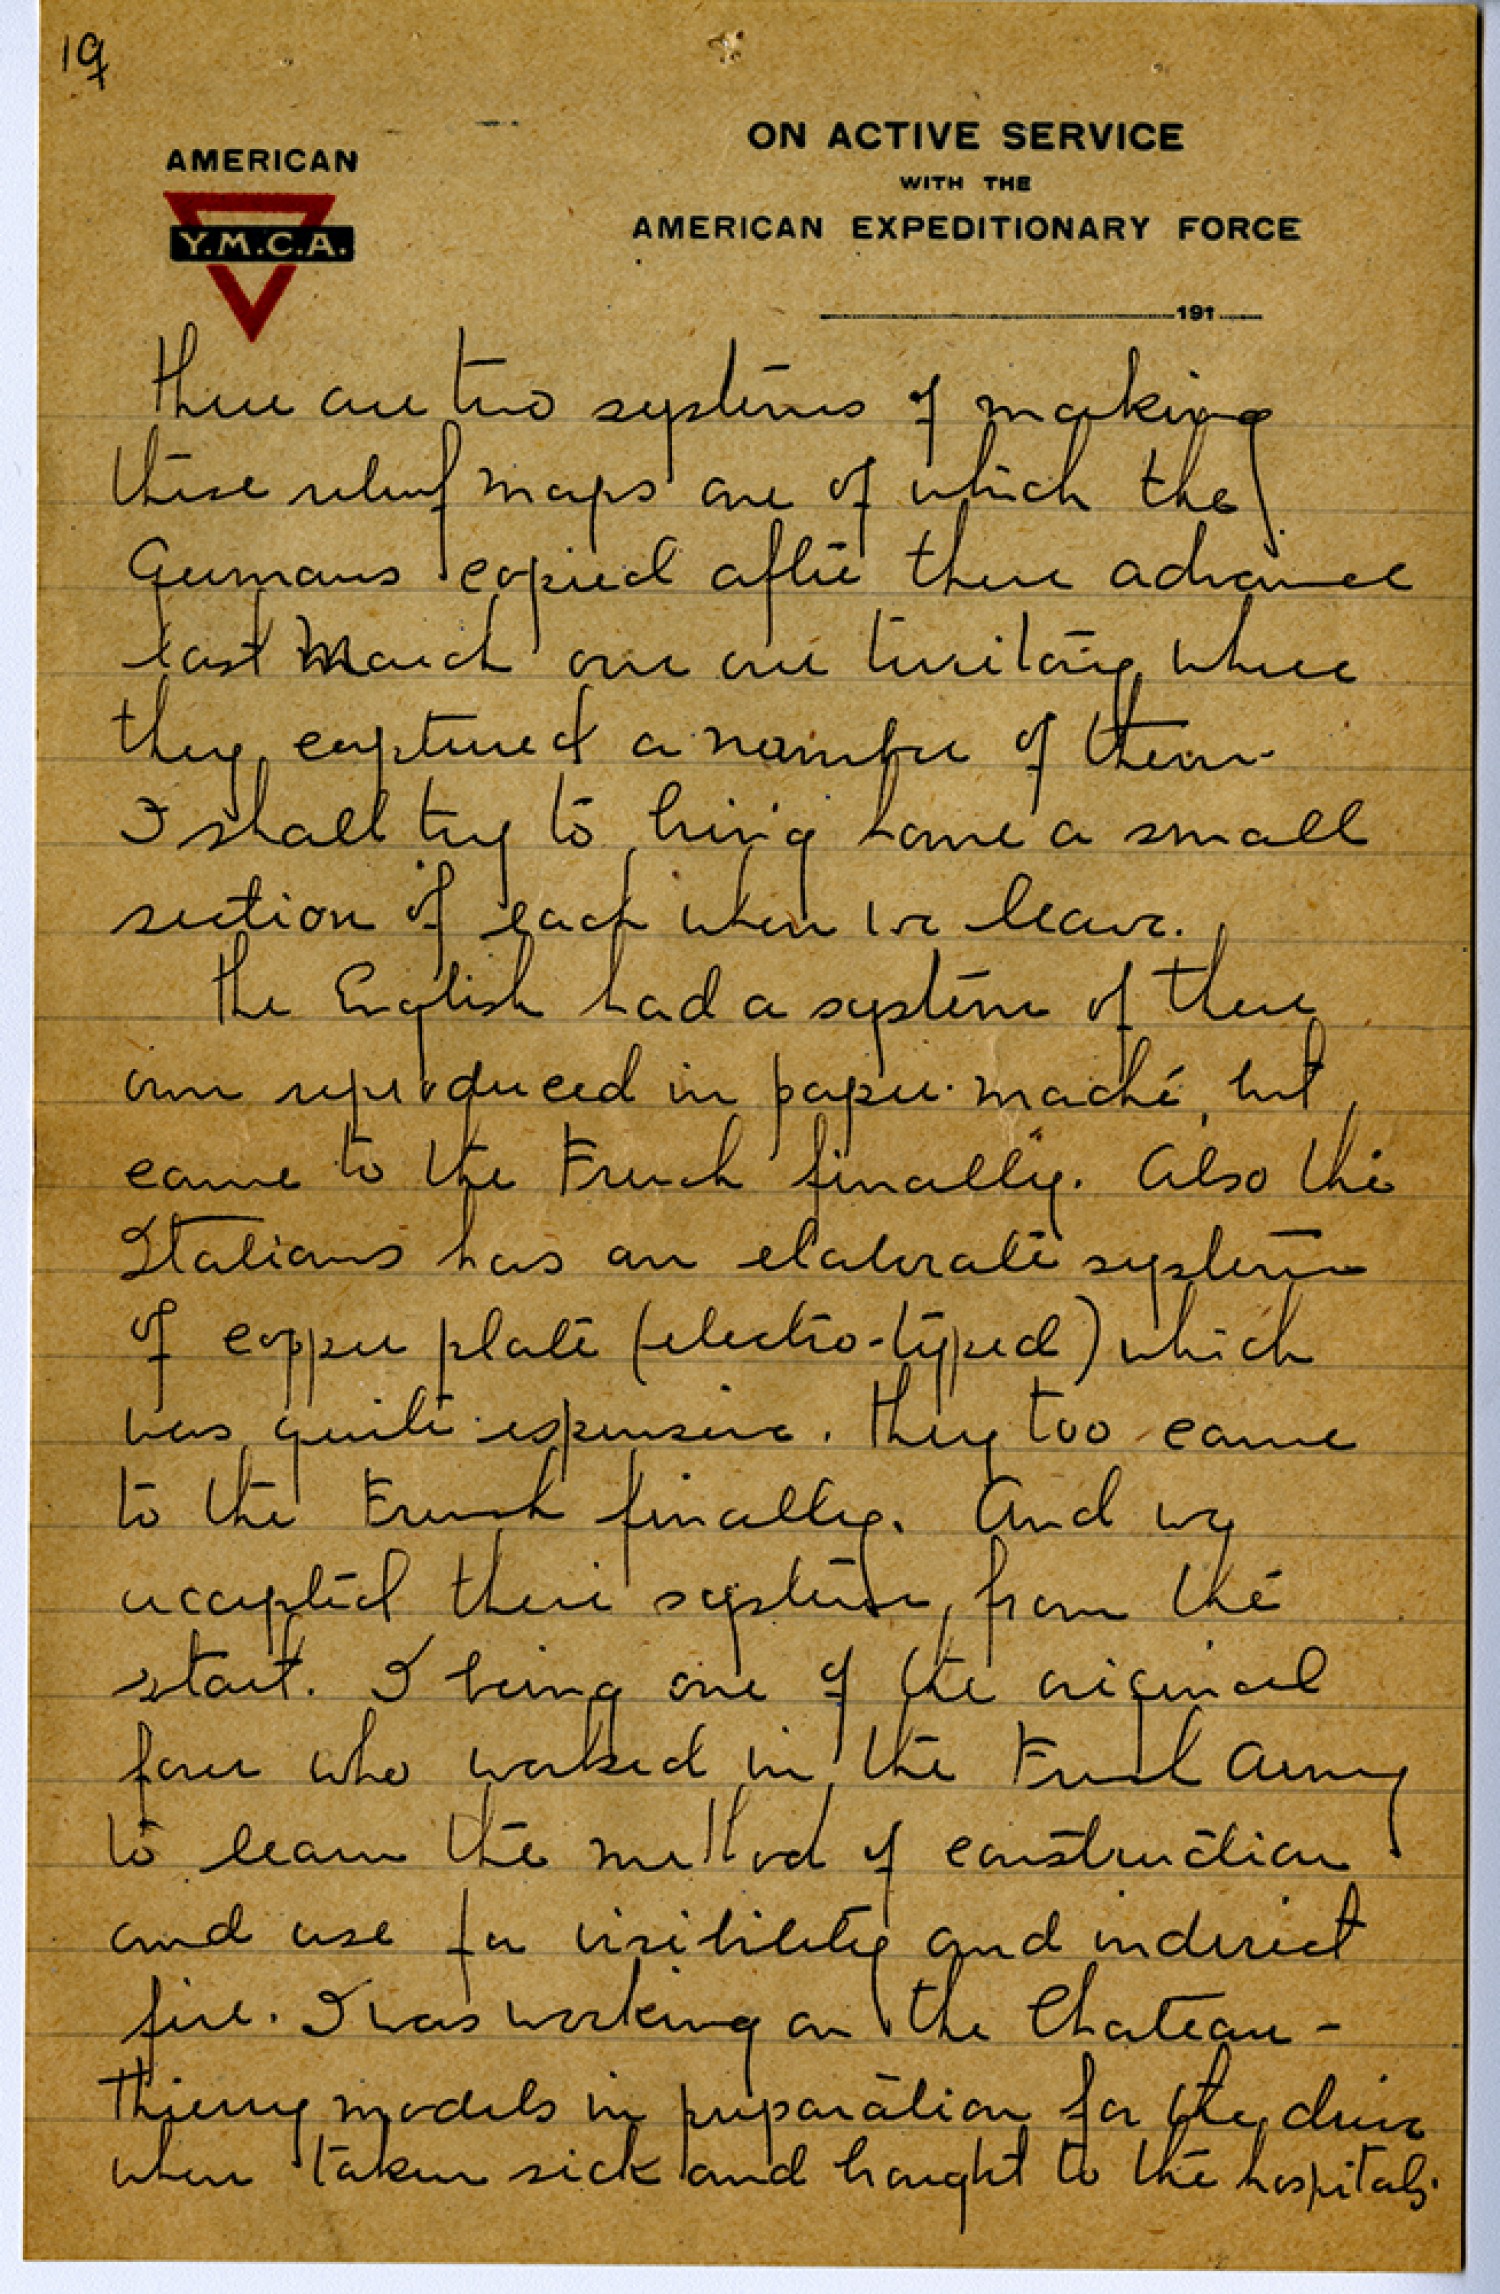 19
AMERICAN
Y.M.C.A.
ON ACTIVE SERVICE
WITH THE
AMERICAN EXPEDITIONARY FORCE
191
There are two systems of making
these relief maps one of which the
Germans copied after there advance
last March over our territory where
they captured a number of them.
I shall try to bring home a small
section of each when we leave.
The English had a system of there
own reproduced in papier-maché, but
came to the French finally. Also the
Italians has an elaborate system
of copper plate (electro-typed) which
was quite expensive. They too came
to the French finally. And we
accepted their system, from the
start. I being one of the original
four who worked in the French Army
to learn the method of construction
and use for visibility and indirect
fire. I was working on the Chateau-
Thierry models in preparation for the drive
when taken sick and brought to the hospitals.